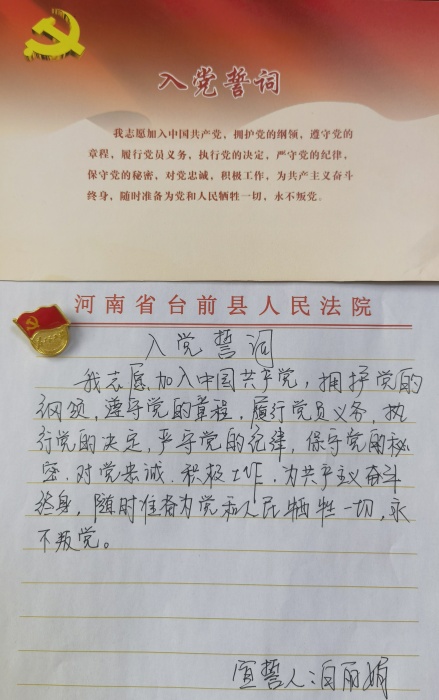 入党誓词
我志愿加入中国共产党，拥护党的纲领，遵守党的
章程，履行党员义务，执行党的决定，严守党的纪律，
保守党的秘密，对党忠诚，积极工作，为共产主义奋斗
终身，随时准备为党和人民牺牲一切，永不叛党。
河南省台前县人民法院
入党誓词
我志愿加入中国共产党，拥护党的
纲领，遵守党的章程，履行党员义务，执
行党的决定，严守党的纪律，保守党的秘
密，对党忠诚，积极工作，为共产主义奋斗
终身，随时准备为党和人民牺牲一切，永
不叛党。
宣誓人：白丽娟